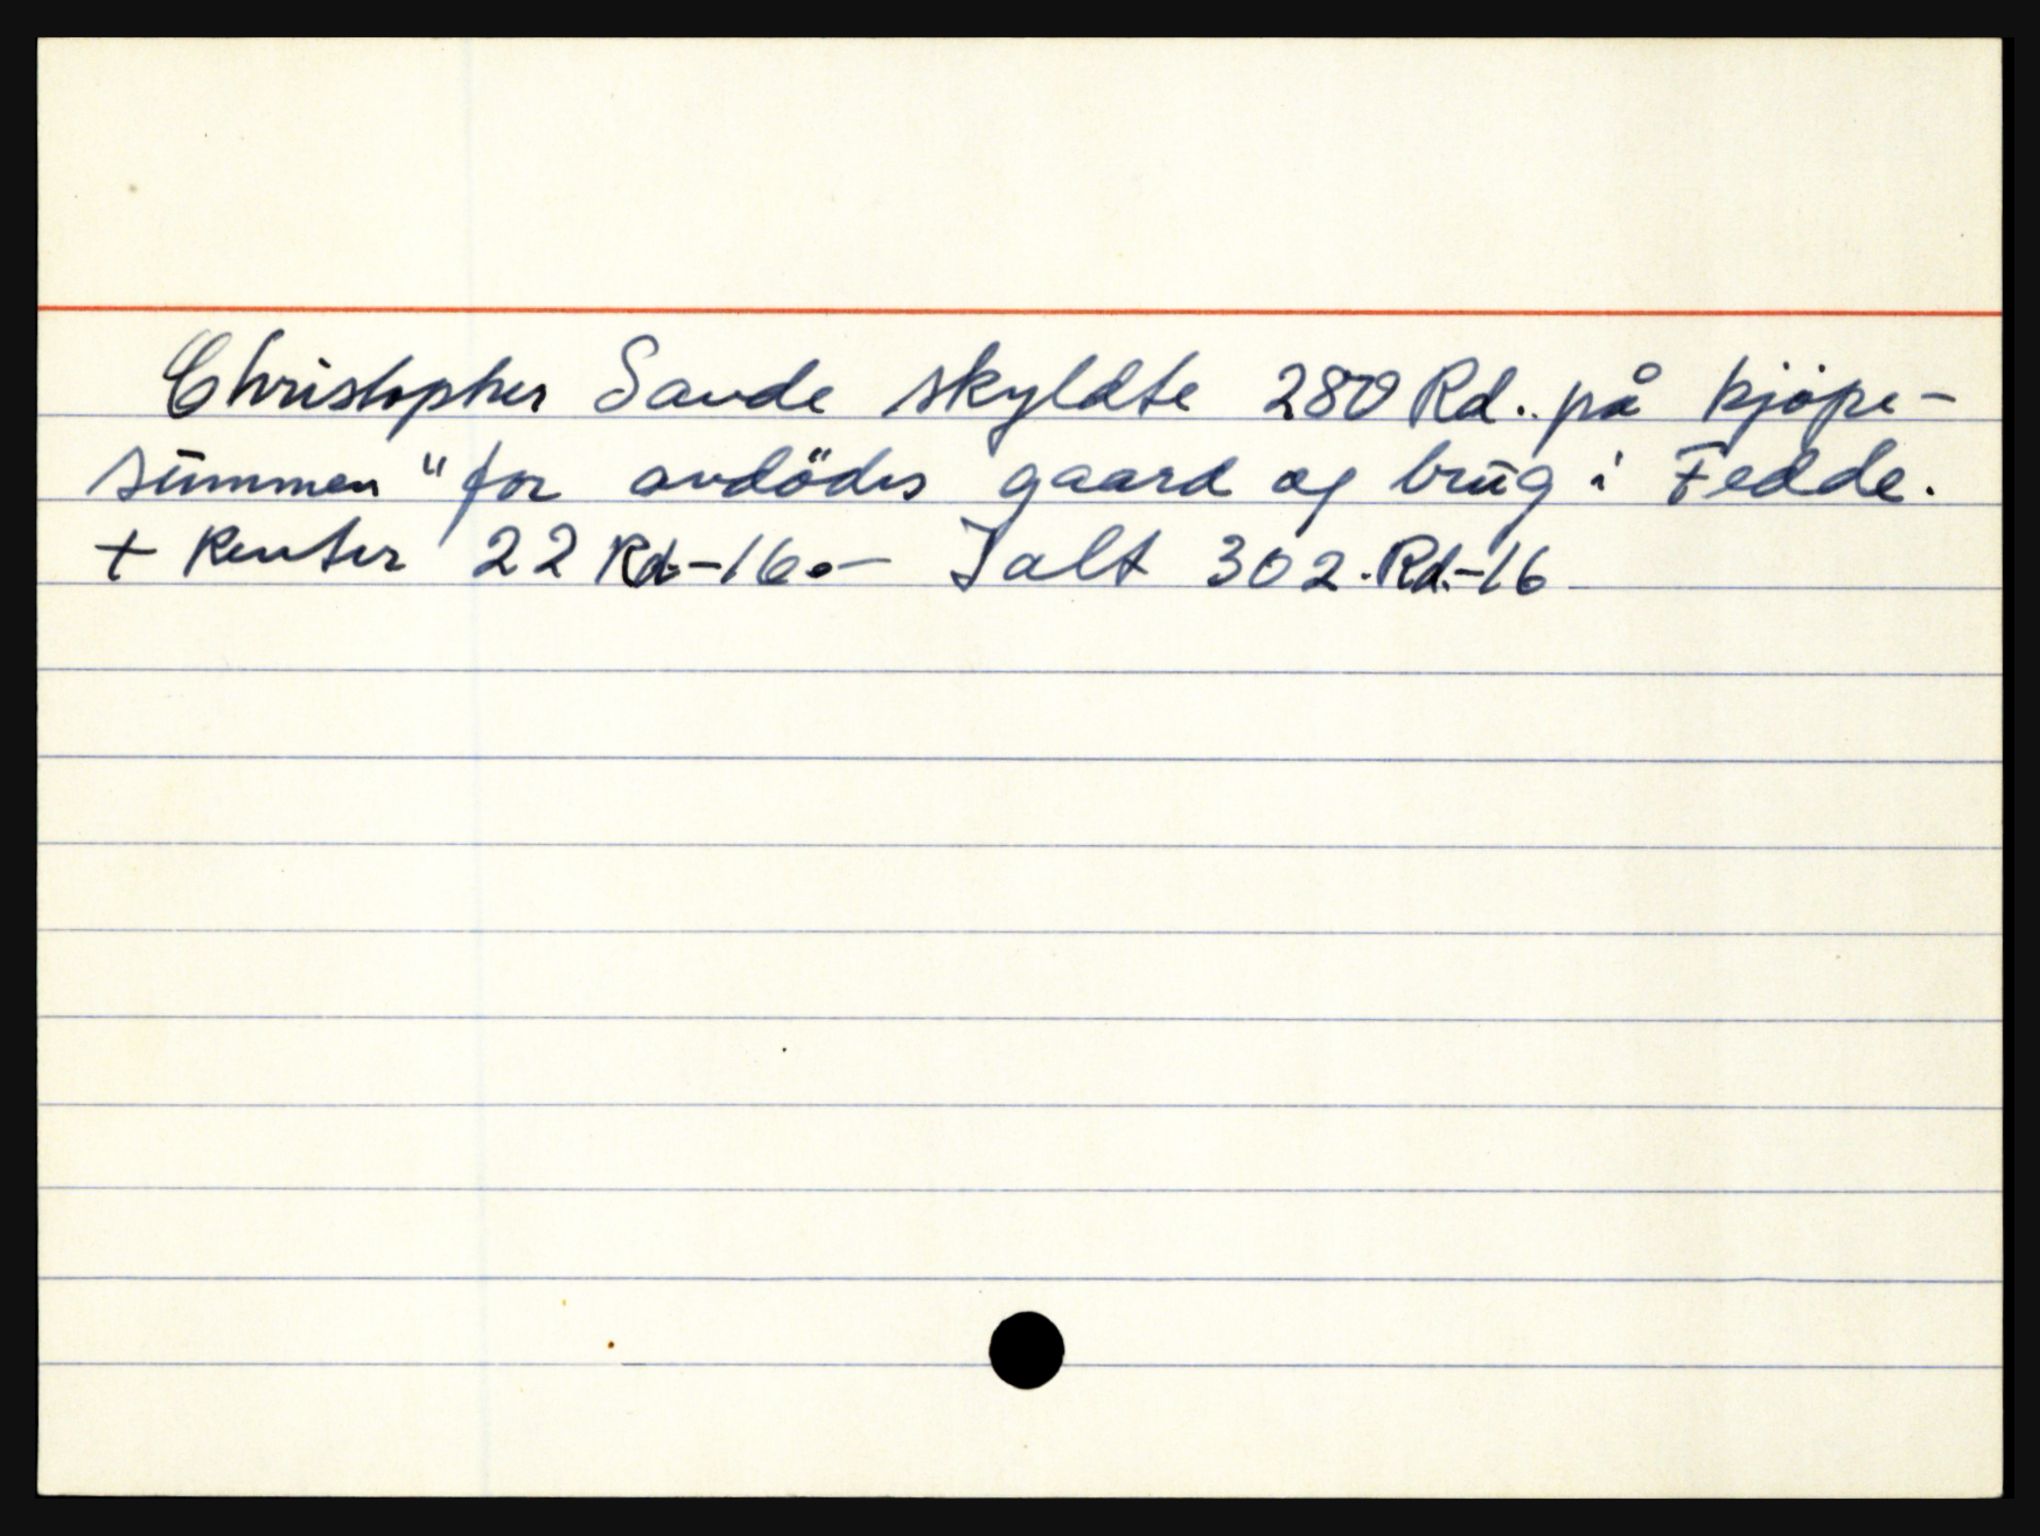 Christopher Sande skyldte 280 Rd.. på kjöpe-
summen "for avdödes gaard og brug i Fedde.
+ Renter 22 Rd.-16.- Ialt 302.Rd.-16